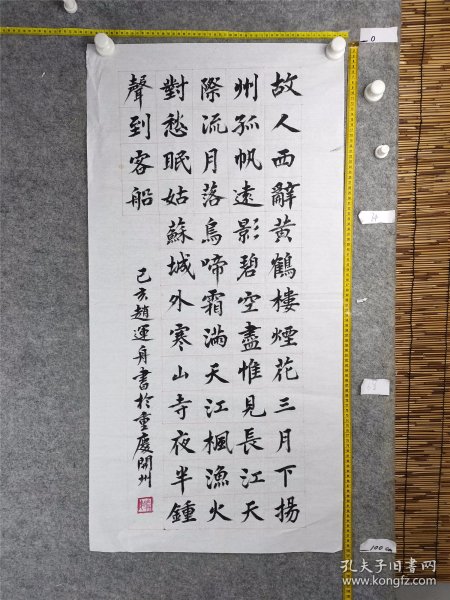 故人西辭黃鶴樓煙花三月下揚
州孤帆遠影碧空盡惟見長江天
際流月落烏啼霜滿天江楓漁火
對愁眠姑蘇城外寒山寺夜半鍾
聲到客船
己亥趙運舟書於重慶開州
0
100cm
孔夫子旧书网
www.kongfz.com